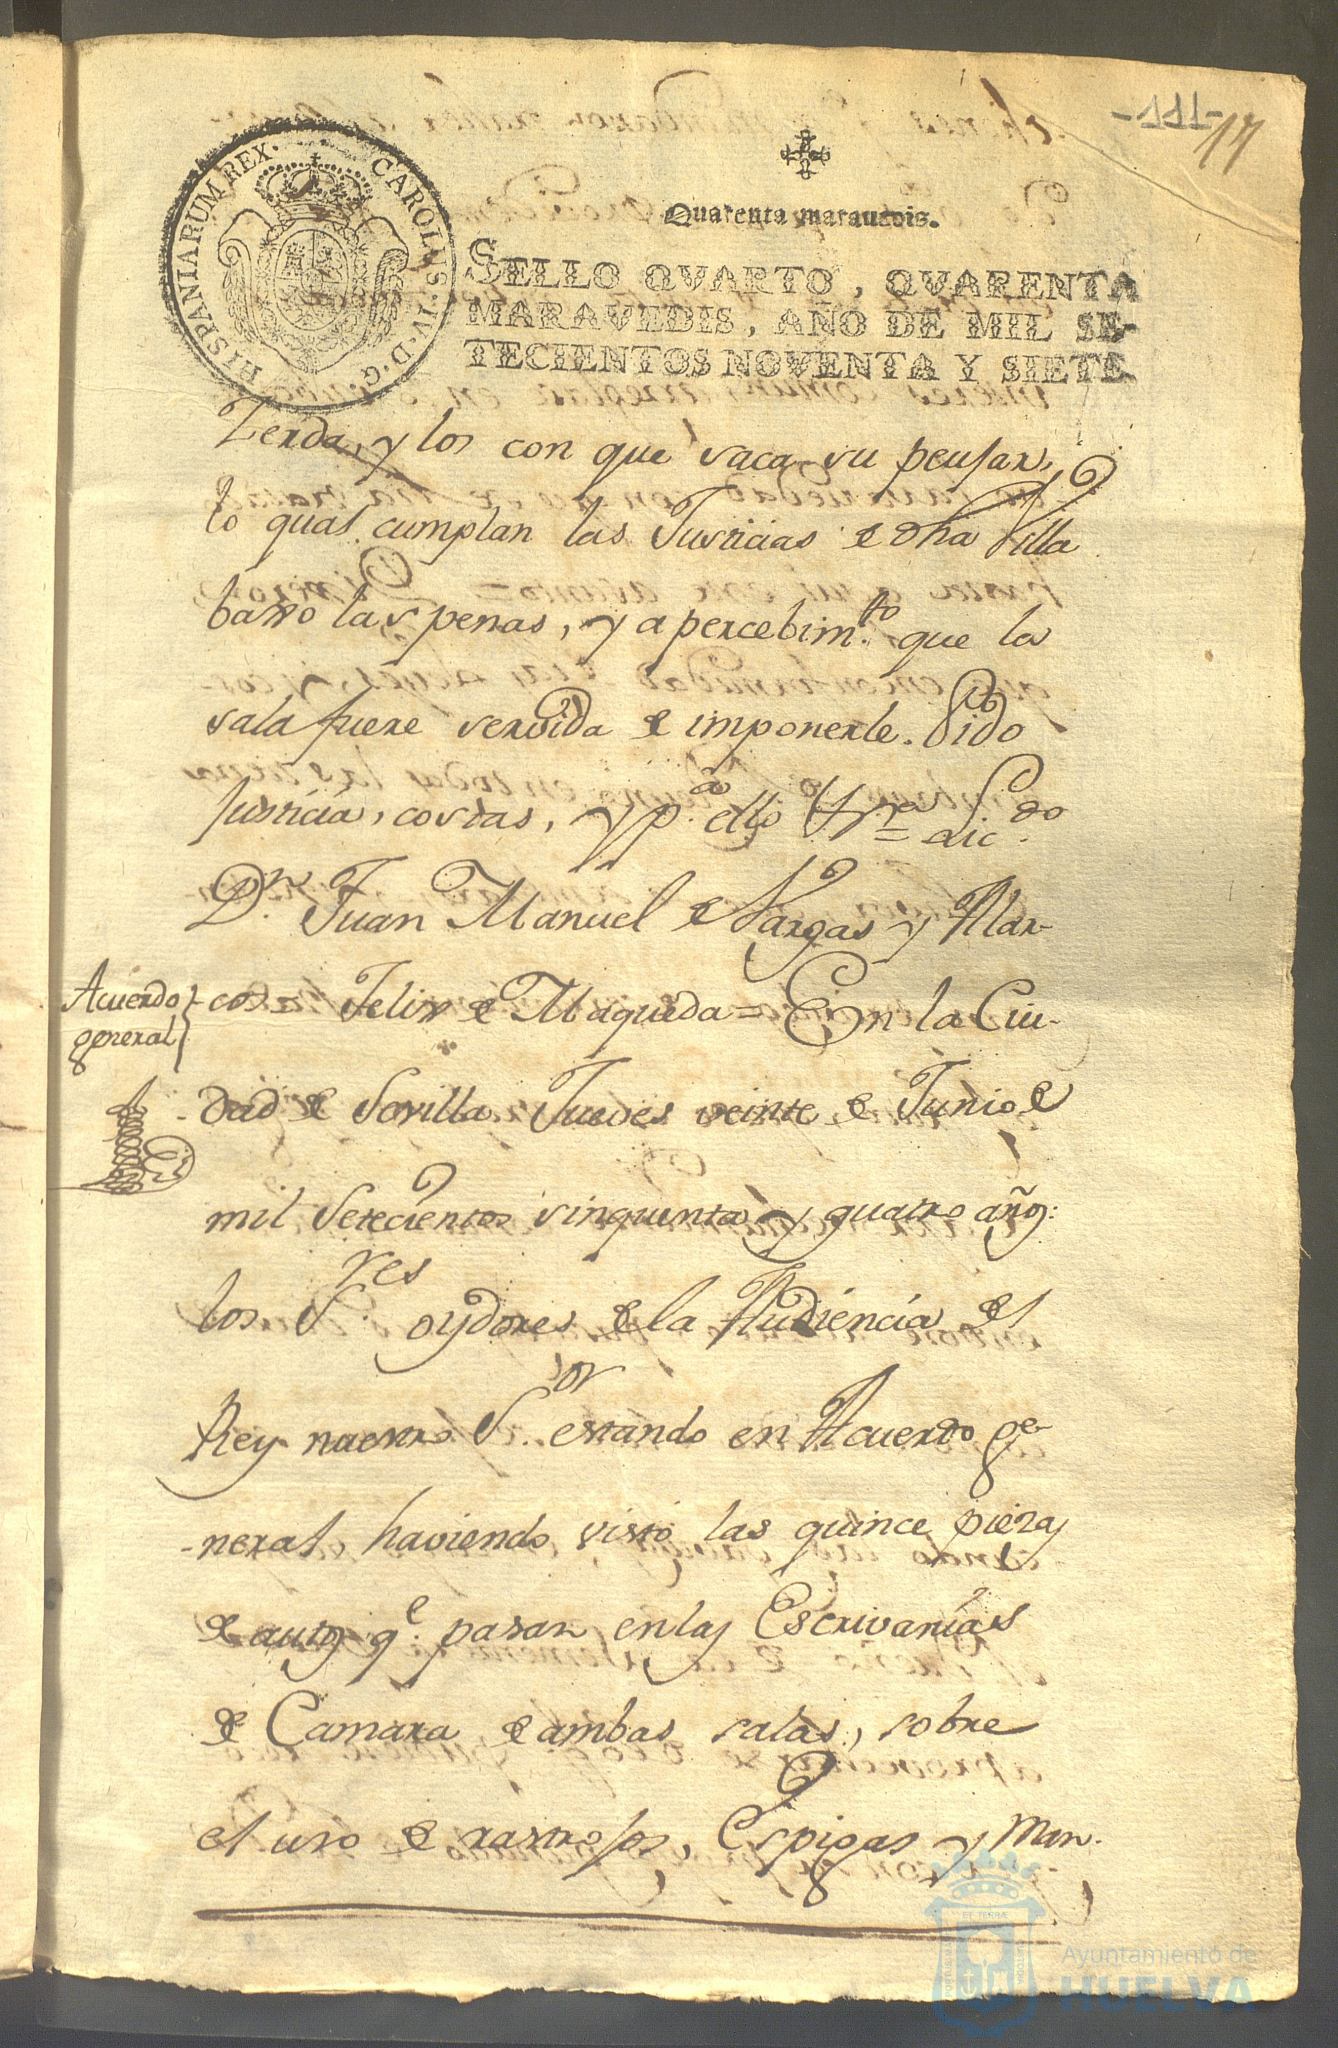 -177-
17
HISPANIARUM REX. CAROLUS. IV. D. G.
Quarenta marauedis.
SELLO QVARTO, QVARENTA
MARAVEDIS, AÑO DE MIL SE-
TECIENTOS NOVENTA Y SIETE
Zerda, y los con que saca su peujar,
lo qual cumplan las Justicias de dha Villa
baxo las penas, y apercebim.to que la
sala fuere servida de imponerle. Pido
Justicia, costas, y p.a ello &.ra = Lic.do
D.n Juan Manuel de Vargas y Mar-
Acuerdo
general
cos = Felix de Maqueda = En la Ciu-
dad de Sevilla Jueves veinte de Junio de
mil Setecientos sinquenta y quatro años:
los S.res oydores de la Audiencia del
Rey nuestro S.or estando en Acuerdo ge-
-neral haviendo visto las quince piezas
de autos q.e pasan en las Escrivanias
de Camara de ambas salas, sobre
el uso de rastrojos, Espigas y Mon-
Ayuntamiento de
HUELVA